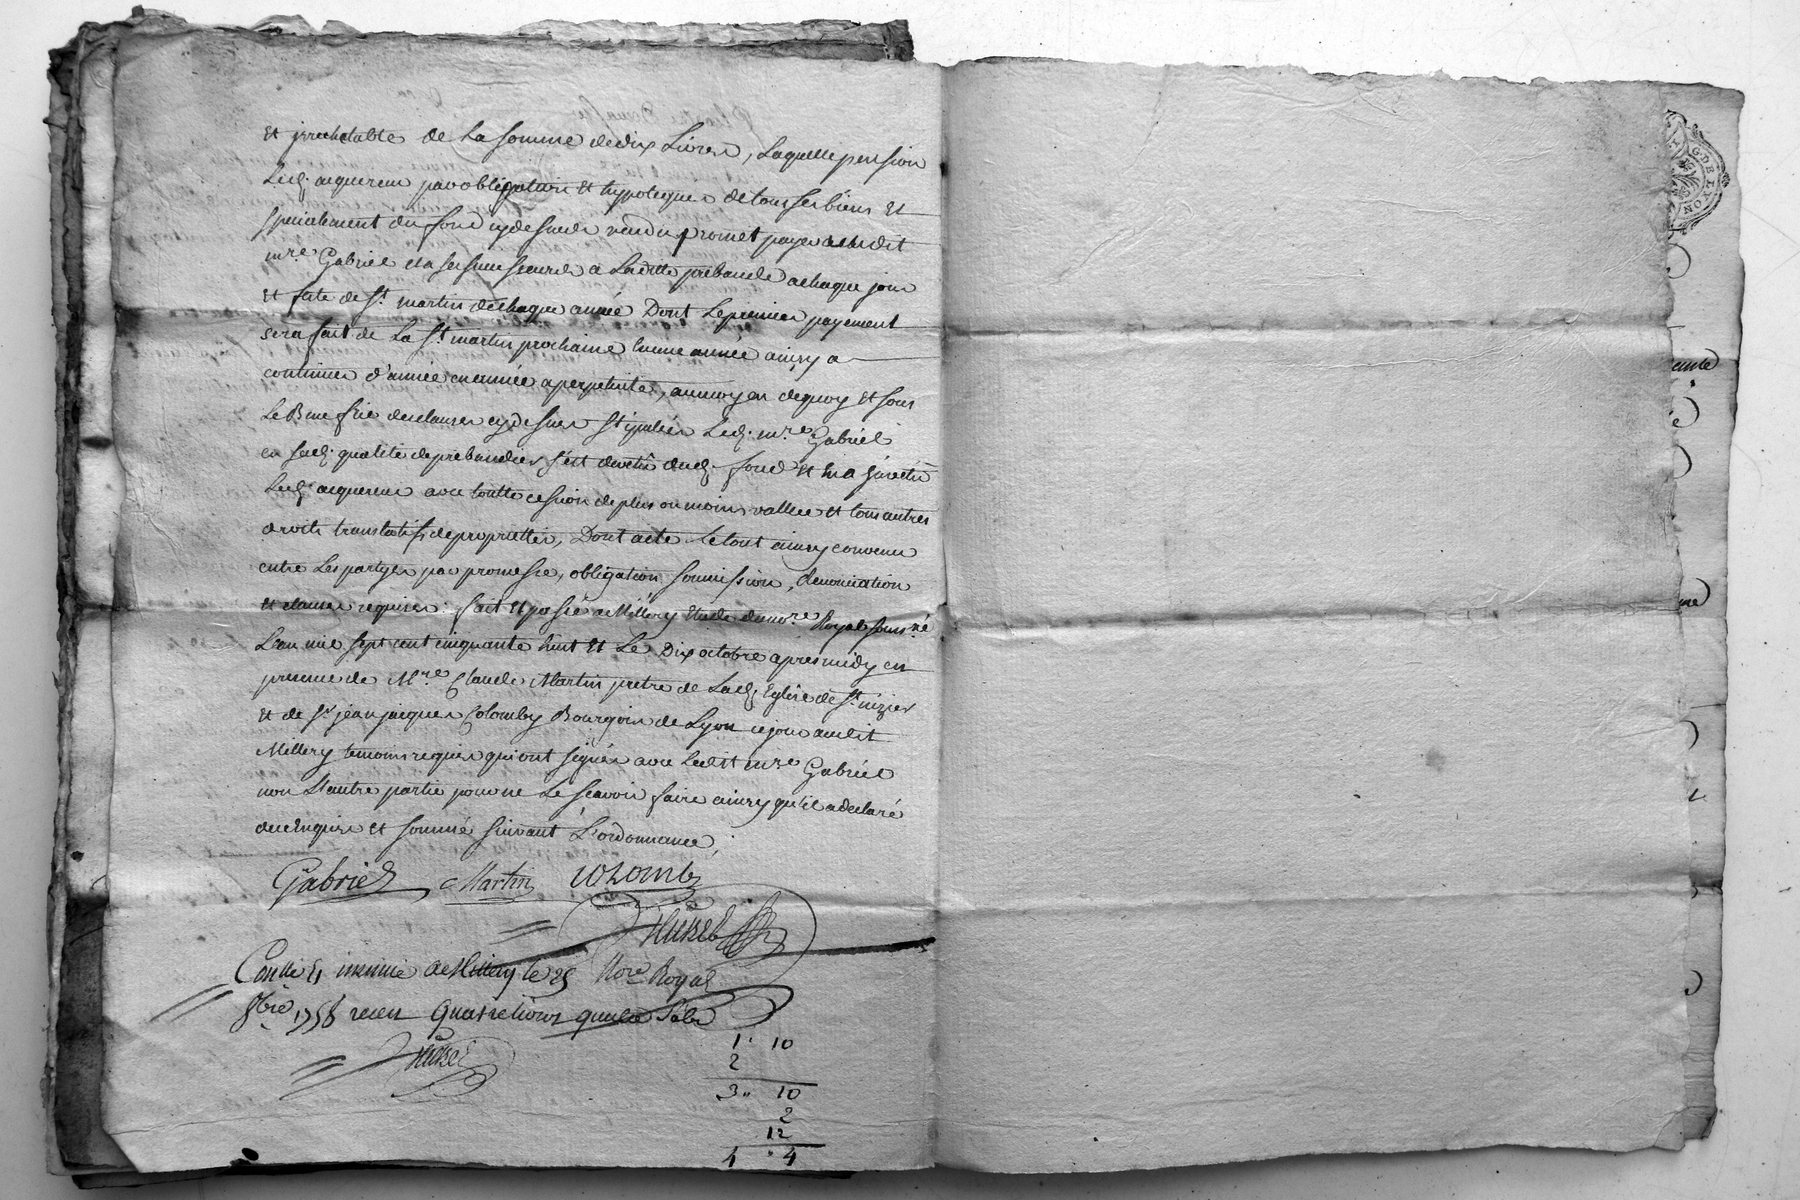 et irrachetable de La somme de dix Livres, Laquelle pension
Led. acquereur par obligation et hypoteques de tous ses biens et
specialement du fond cy dessus vendu promet payer audit
mre Gabriel et a ses successeurs a Laditte prebande a chaque jour
et fete de St martin de chaque année Dont Le premier payement
sera fait de La St martin prochaine en une année ainsy a
continuer d'année en année a perpetuité, au moyen de quoy et sous
Le Benefice des clauses cy dessus stipulées Led. mre Gabriel
en sad. qualité de prebandier s'est devetu dud. fond et en a invetu
Led. acquereur avec toutte cession de plus ou moins vallue et tous autres
droits translatifs de proprietté, Dont acte. Le tout ainsy convenu
entre Les partyes par promesse, obligation, soumission, renonciation
et clauses requises. fait et passé a Millery etude du nore Royal soussné
L'an mil sept cent cinquante huit et Le Dix octobre apres midy en
presence de Mre Claude Martin pretre de Lad. Eglise de St nizier
et de Sr jean jacques Colomby Bourgois de Lyon ce jour audit
Millery temoins requis qui ont signés avec Ledit mre Gabriel
non L'autre partie pour ne Le scavoir faire ainsy qu'il a declaré
de ce enquis et sommé suivant L'ordonnance,
Gabriel Martin Colomb
Nore Royal
Conllé et insinué a Millery le 25
8bre 1758 recu Quatre livres quatre sols
1. 10
2
3. 10
2
12
4. 4
G. DE LYON